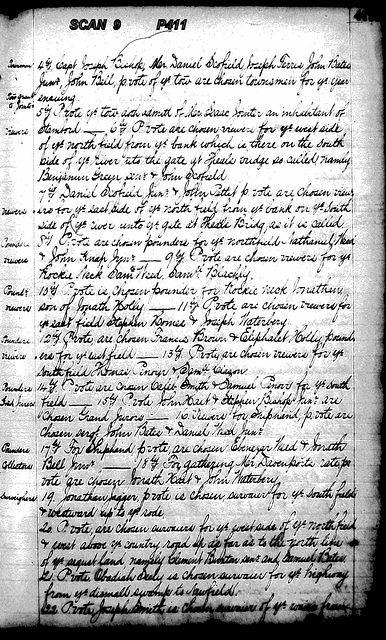 SCAN 9 P411
4ly Capt Joseph Bishop, Mr. Daniel Scofield Joseph Ferris John Bates
Junr, John Bell, p vote of ye tow are chosen townsmen for ye year
ensuing
5ly P vote ye tow doth admitt of Mr. Isaac Jonter an inhabitant of
Stamford — 6ly P vote are chosen viewers for ye west side
viewers
of ye north field from ye bank which is there on the south
side of ye river at the gate at bridge so called, namely
Benjamin Green senr & John Scofield
7ly Daniel Scofield Junr & John Pettet p vote are chosen view
viewers
ers for ye east side of ye north field from ye bank on ye South
side of ye river unto ye gate at Bridg as it is called,
Pounders
8ly P vote are chosen pounders for ye northfield Nathaniel Weed
viewers
& John Knap Junr — 9ly P vote are chosen viewers for ye
Rockie Neck Saml Weed, Saml Blachly
Pounds
10ly P vote is Chosen Pounder for Rockie Neck Jonathan
viewers
son of Jonath Holly — 11ly P vote are chosen viewers for
ye east field Stephen Homes & Joseph Waterbery
Pounders
12ly P vote are chosen Francis Brown & Eliphalet Holly pound
viewers
ers for ye east field — 13ly P vote are chosen viewers for ye
South field Thomas Penoyr &
Pounders
14ly P vote are chosen Smith & Samuel Penoir for ye South
Grad Jurors
field — 15ly P vote John Hait & Stephen Bishop Junr are
Chosen Grand Jurors — 16 viewers for Shiphand p vote are
chosen serg John Bates & Daniel Weed Junr
Pounders
17ly For Shiphand p vote are chosen Ebenezar Weed & Jonath
Collectors
Bell Junr — 18ly For gathering Mr Davenports rate p
vote are chosen Jonath Hait & John Waterbery
19 Jonathan Jagger, p vote is chosen survair for ye South fields
& westward up to ye rode
20 P vote, are chosen survairs for ye west side of ye north field
& west above ye country road up as far as to the north line
of ye land namely Clement Buxton senr and Samuel Bates
21 P vote Obadiah Seely is chosen survair for ye highway
from ye dismall swamp to Newfield
22 P vote Joseph Smith is chosen survair of ye ways from